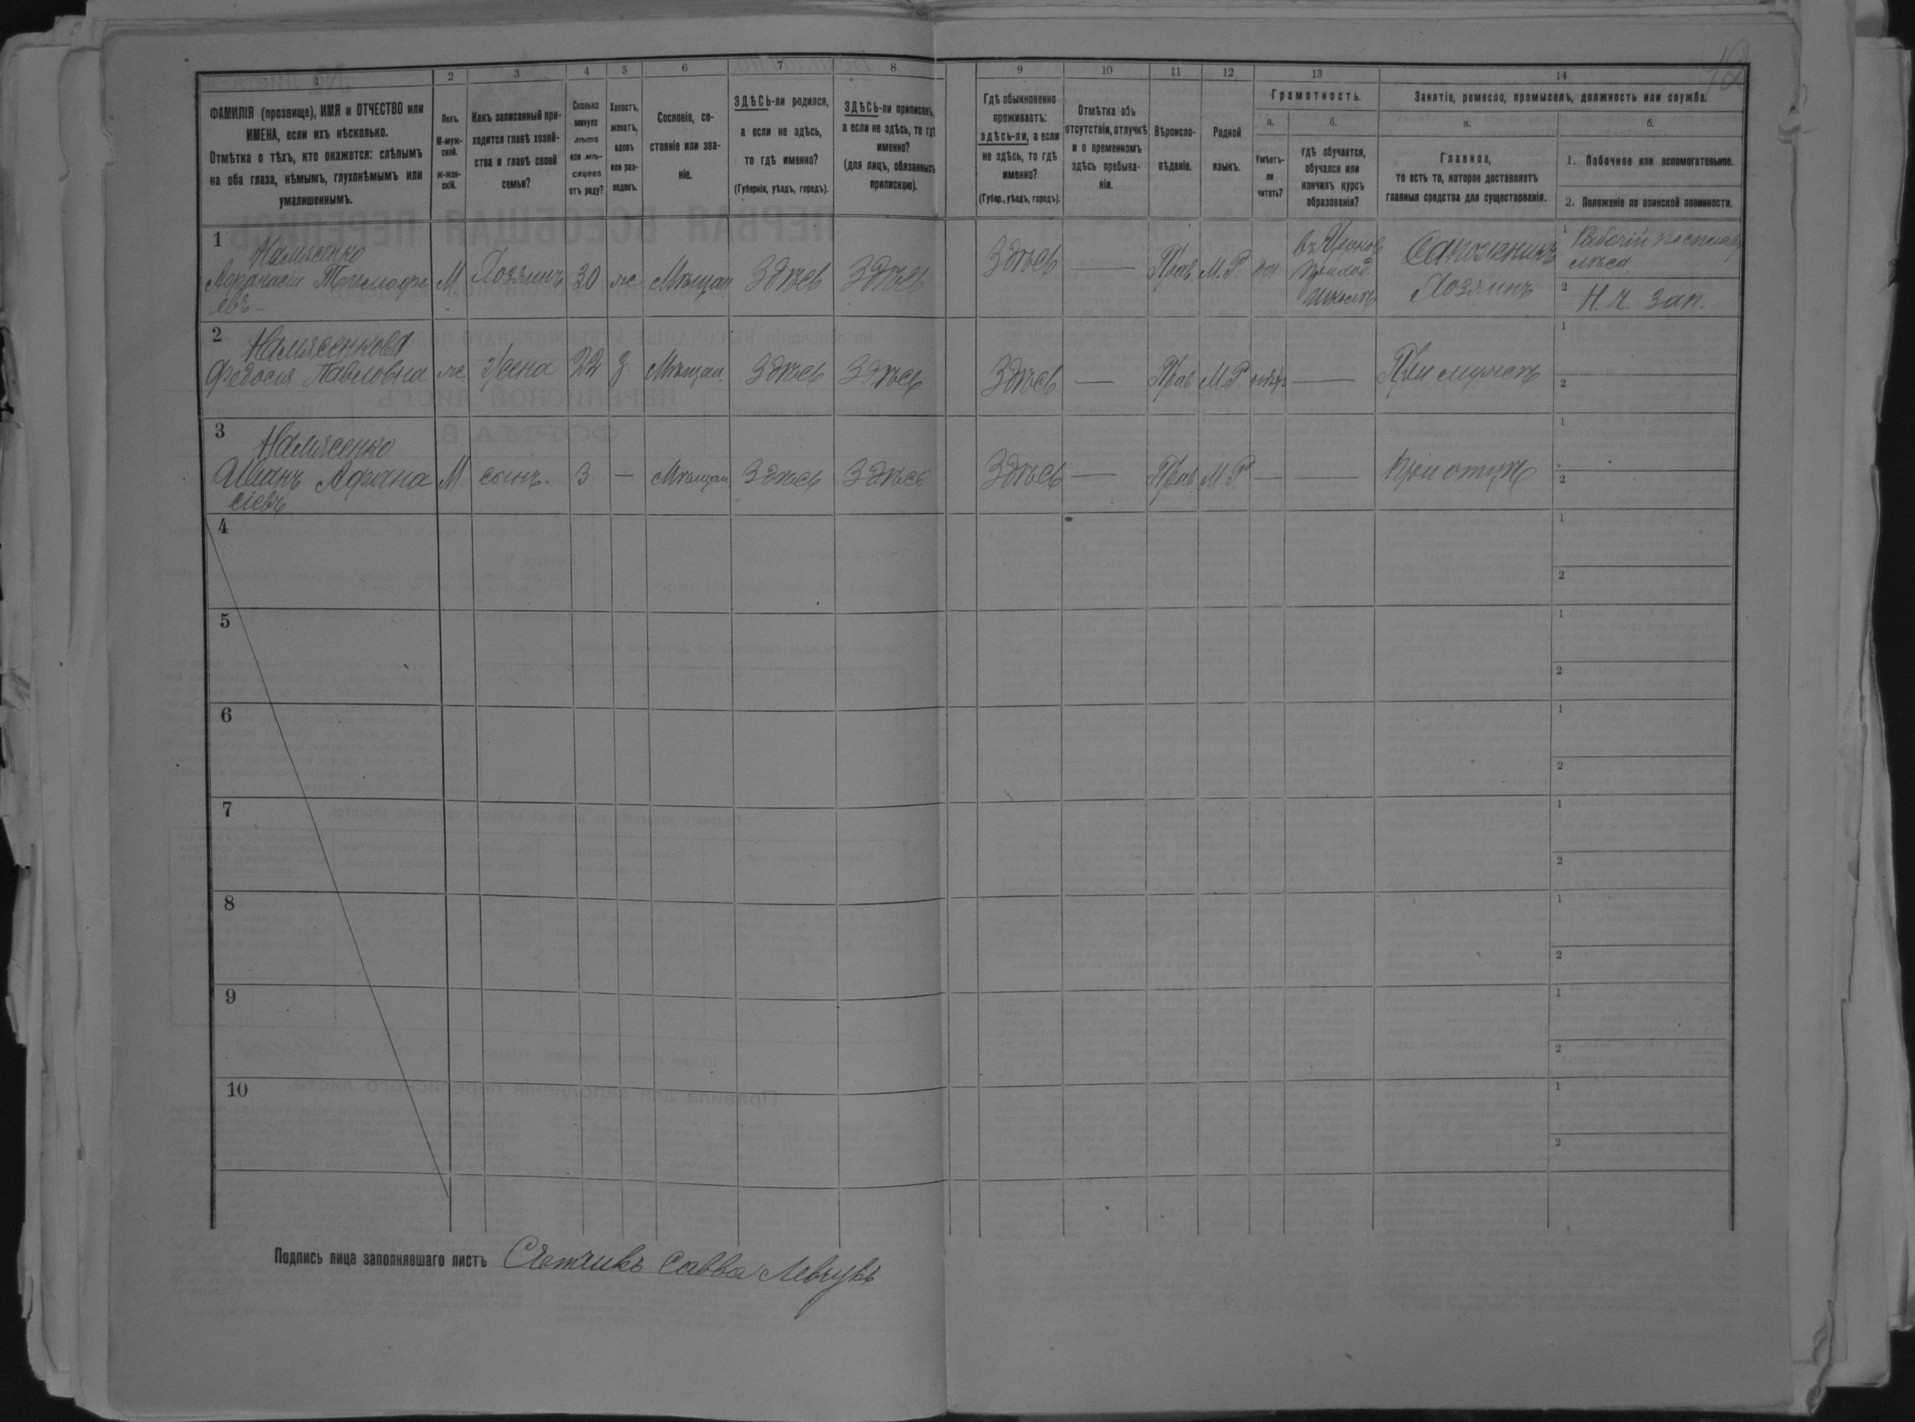 1 2 3 4 5 6 7 8 9 10 11 12 13 14
ФАМИЛІЯ (прозвище), ИМЯ и ОТЧЕСТВО или
ИМЕНА, если ихъ нѣсколько.
Отмѣтка о тѣхъ, кто окажется: слѣпымъ
на оба глаза, нѣмымъ, глухонѣмымъ или
умалишеннымъ.
Полъ.
М-муж-
ской.
ж-жен-
скій.
Какъ записанный при-
ходится главѣ хозяй-
ства и главѣ своей
семьи?
Сколько
минуло
лѣтъ
или мѣ-
сяцевъ
отъ роду?
Холостъ,
женатъ,
вдовъ
или раз-
веденъ.
Сословіе, со-
стояніе или зва-
ніе.
ЗДѢСЬ-ли родился,
а если не здѣсь,
то гдѣ именно?
(Губернія, уѣздъ, городъ).
ЗДѢСЬ-ли приписанъ,
а если не здѣсь, то гдѣ
именно?
(для лицъ, обязанныхъ
припискою).
Гдѣ обыкновенно
проживаетъ:
здѣсь-ли, а если
не здѣсь, то гдѣ
именно?
(Губер., уѣздъ, городъ).
Отмѣтка объ
отсутствіи, отлучкѣ
и о временномъ
здѣсь пребыва-
ніи.
Вѣроиспо-
вѣданіе.
Родной
языкъ.
Грамотность.
а.
Умѣетъ-
ли
читать?
б.
гдѣ обучается,
обучался или
кончилъ курсъ
образованія?
Занятіе, ремесло, промыселъ, должность или служба.
а.
Главное,
то есть то, которое доставляетъ
главныя средства для существованія.
б.
1. Побочное или вспомогательное.
2. Положеніе по воинской повинности.
1
Намясенко
Афанасій Тимофе
евъ
М Хозяинъ 30 ж Мѣщан Здѣсь Здѣсь Здѣсь — Прав. М.Р. да
въ Церков
приход.
школѣ
Сапожникъ
Хозяинъ
1 Рабочій
2 Н. Ч. Зап.
2
Намясенкова
Федосія Павловна ж. Жена 22 з. Мѣщан. Здѣсь Здѣсь Здѣсь — Прав М.Р. нѣтъ — При мужѣ
1
2
3
Намясенко
Иванъ Афана
сіевъ
М сынъ. 3 — Мѣщан Здѣсь Здѣсь Здѣсь — Прав. М.Р. — — При отцѣ
1
2
4
1
2
5
1
2
6
1
2
7
1
2
8
1
2
9
1
2
10
1
2
Подпись лица заполнявшаго листъ Счетчикъ Савва Левчукъ